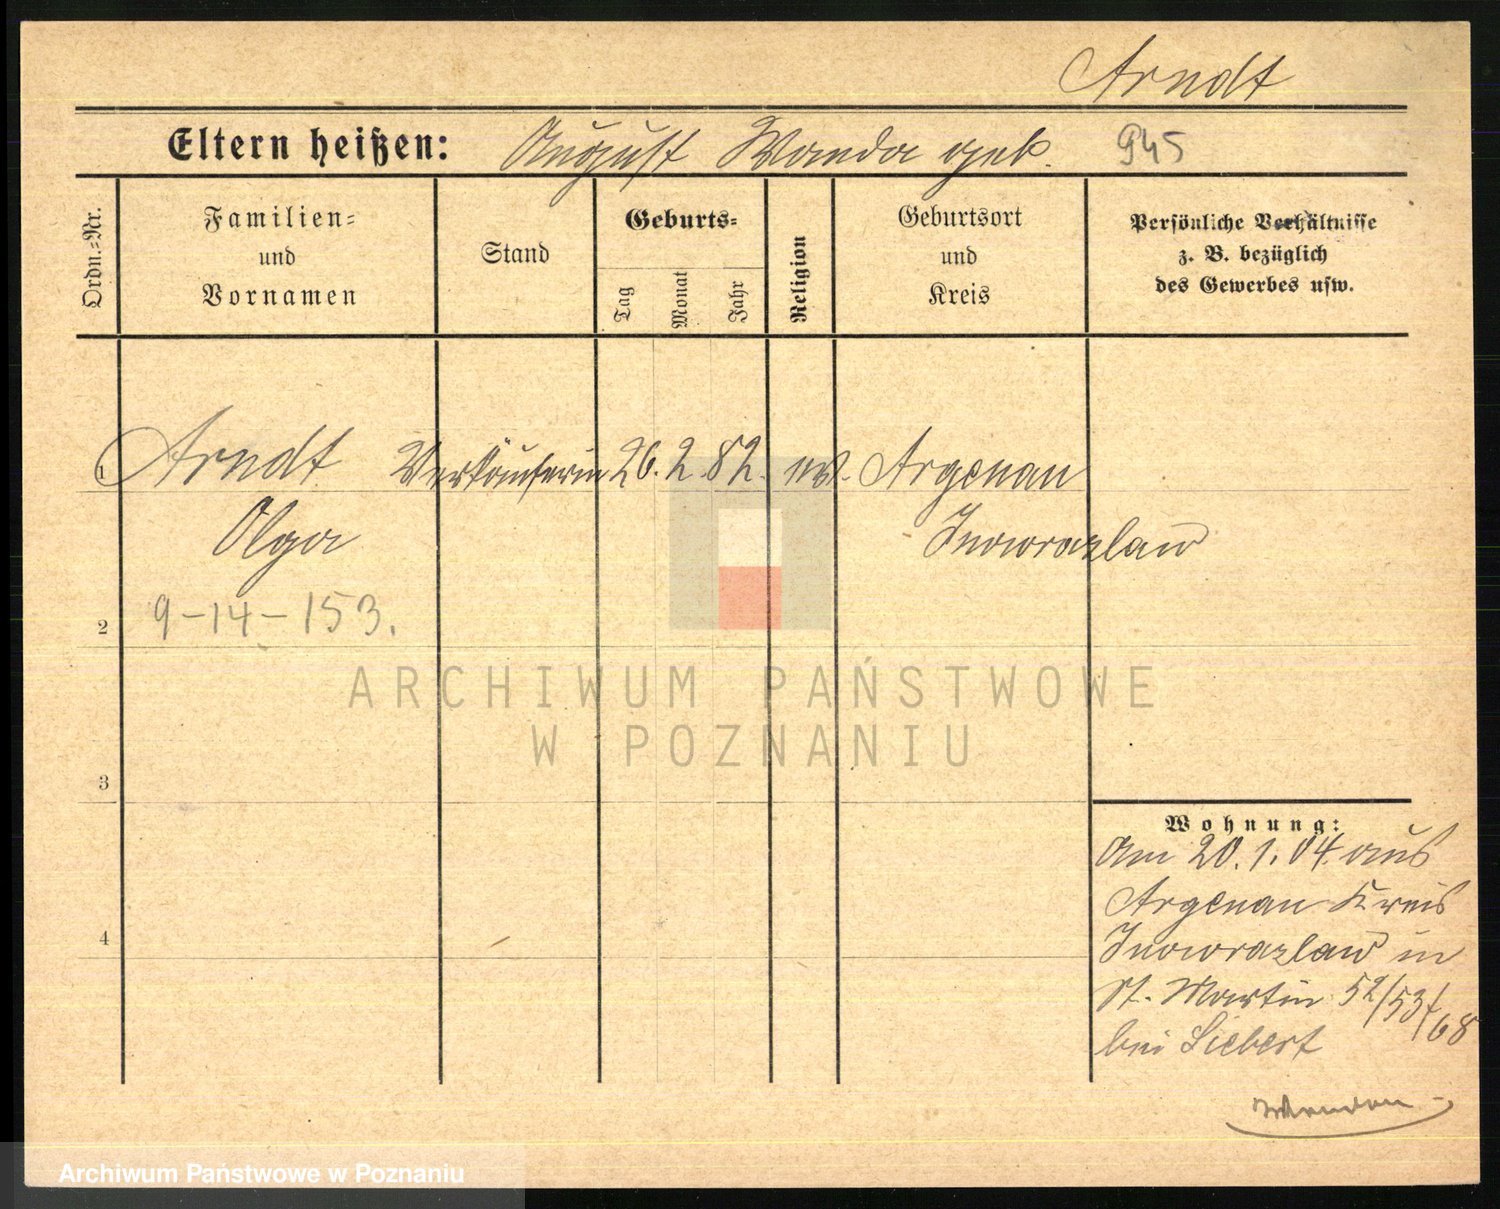 Arndt
Eltern heißen: August Wanda geb. 945
Ordn.=Nr.
Familien=
und
Vornamen
Stand
Geburts=
Tag
Monat
Jahr
Religion
Geburtsort
und
Kreis
Persönliche Verhältnisse
z. B. bezüglich
des Gewerbes usw.
1 Arndt Verkäuferin 26. 2. 82. ev. Argenau
Olga Inowrazlaw
2 9-14-153.
ARCHIWUM PAŃSTWOWE
W POZNANIU
3
Wohnung:
Am 20.1.04. aus
Argenau Kreis
4
Inowrazlaw in
St. Martin 52/53/68
bei Siebert
Archiwum Państwowe w Poznaniu